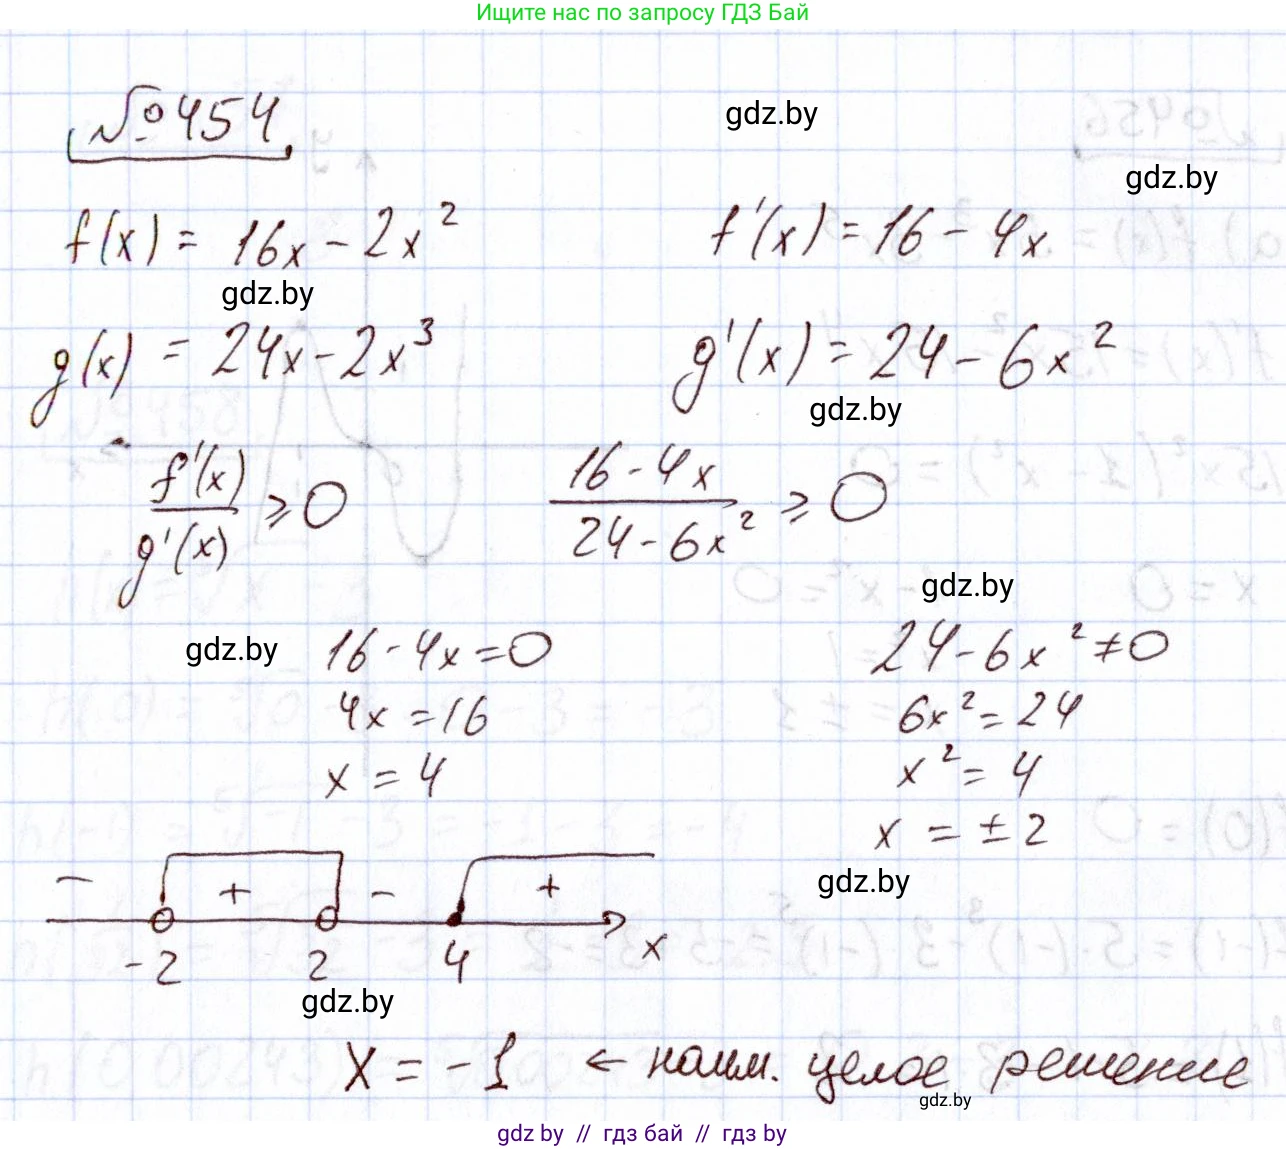 Ищите нас по запросу ГДЗ Бай
№454
gdz.by
gdz.by
f(x) = 16x - 2x² f'(x) = 16 - 4x
gdz.by
g(x) = 24x - 2x³ g'(x) = 24 - 6x²
gdz.by
f'(x)/g'(x) ≥ 0 (16 - 4x)/(24 - 6x²) ≥ 0
gdz.by
gdz.by
16 - 4x = 0 24 - 6x² ≠ 0
4x = 16 6x² = 24
x = 4 x² = 4
x = ± 2
gdz.by
- + - +
-2 2 4 x
gdz.by
x = -1 ← наим. целое решение
gdz.by
gdz by // гдз бай // гдз by